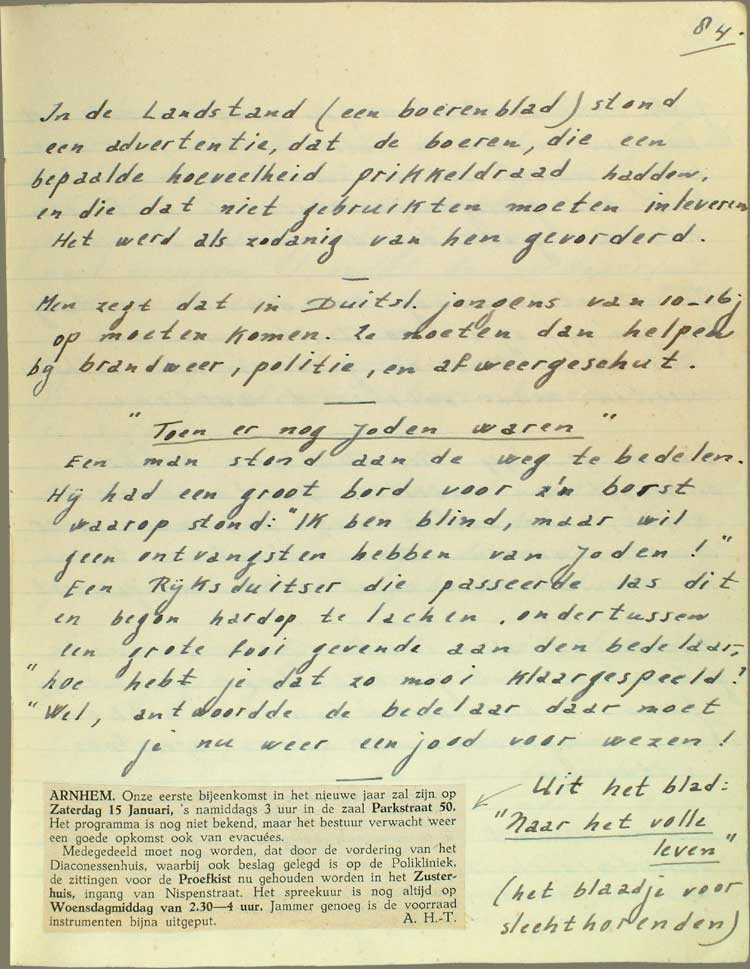 84.
In de Landstand (een boerenblad) stond
een advertentie, dat de boeren, die een
bepaalde hoeveelheid prikkeldraad hadden,
en die dat niet gebruikten moeten inleveren
Het werd als zodanig van hen gevorderd.
Men zegt dat in Duitsl. jongens van 10-16j
op moeten komen. Ze moeten dan helpen
bij brandweer, politie, en afweergeschut.
"Toen er nog Joden waren"
Een man stond aan de weg te bedelen.
Hij had een groot bord voor z'n borst
waarop stond: "Ik ben blind, maar wil
geen ontvangsten hebben van Joden!"
Een Rijksduitser die passeerde las dit
en begon hardop te lachen, ondertussen
een grote fooi gevende aan den bedelaar,
"hoe hebt je dat zo mooi klaargespeeld?
"Wel, antwoordde de bedelaar daar moet
je nu weer een jood voor wezen!
ARNHEM. Onze eerste bijeenkomst in het nieuwe jaar zal zijn op
Zaterdag 15 Januari, 's namiddags 3 uur in de zaal Parkstraat 50.
Het programma is nog niet bekend, maar het bestuur verwacht weer
een goede opkomst ook van evacués.
Medegedeeld moet nog worden, dat door de vordering van het
Diaconessenhuis, waarbij ook beslag gelegd is op de Polikliniek,
de zittingen voor de Proefkist nu gehouden worden in het Zuster-
huis, ingang van Nispenstraat. Het spreekuur is nog altijd op
Woensdagmiddag van 2.30—4 uur. Jammer genoeg is de voorraad
instrumenten bijna uitgeput. A. H.-T.
Uit het blad:
"Naar het volle
leven"
(het blaadje voor
slechthorenden)